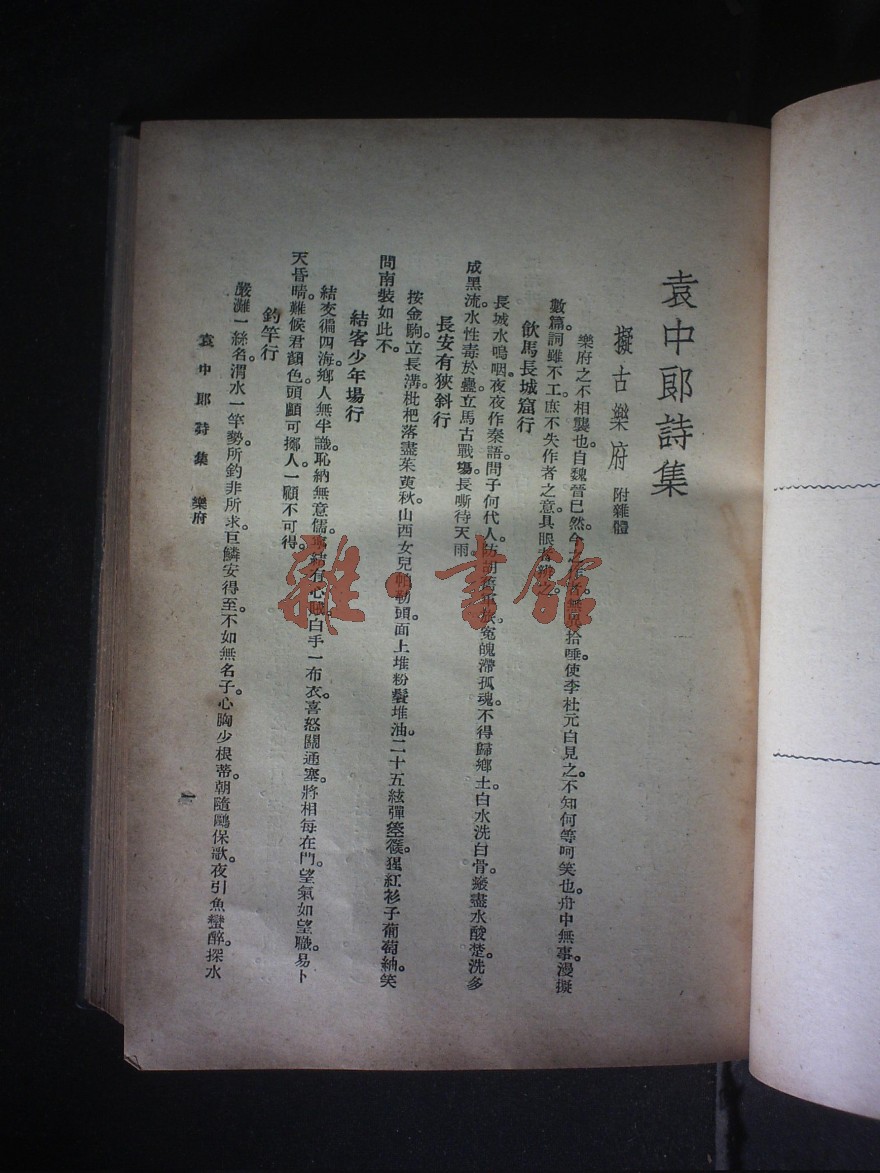 袁中郎詩集
擬古樂府 附雜體
樂府之不相襲也。自魏晉已然。今之作者。無異拾唾。使李杜元白見之。不知何等呵笑也。舟中無事。漫擬
數篇。詞雖不工。庶不失作者之意。具眼者
飲馬長城窟行
長城水嗚咽。夜夜作秦語。問子何代人。防胡 冤魄滯孤魂。不得歸鄉土。白水洗白骨。盡水酸楚。洗多
成黑流。水性毒於蠱。立馬古戰場。長嘶待天雨。
長安有狹斜行
按金駒。立長溝。枇杷落盡茱萸秋。山西女兒帕勒頭。面上堆粉鬢堆油。二十五絃彈箜篌。猩紅衫子葡萄紬。笑
問南裝如此不。
結客少年場行
結交徧四海。鄉人無半識。恥納無意儒。 結有心賊。白手一布衣。喜怒關通塞。將相每在門。望氣如望職。易卜
天昏晴。難候君顏色。頭顱可擲人。一顧不可得。
釣竿行
嚴灘一絲名。渭水一竿勢。所釣非所求。巨鱗安得至。不如無名子。心胸少根蒂。朝隨鷗保歌。夜引魚蠻醉。探水
袁中郎詩集 樂府
一
雜·書館